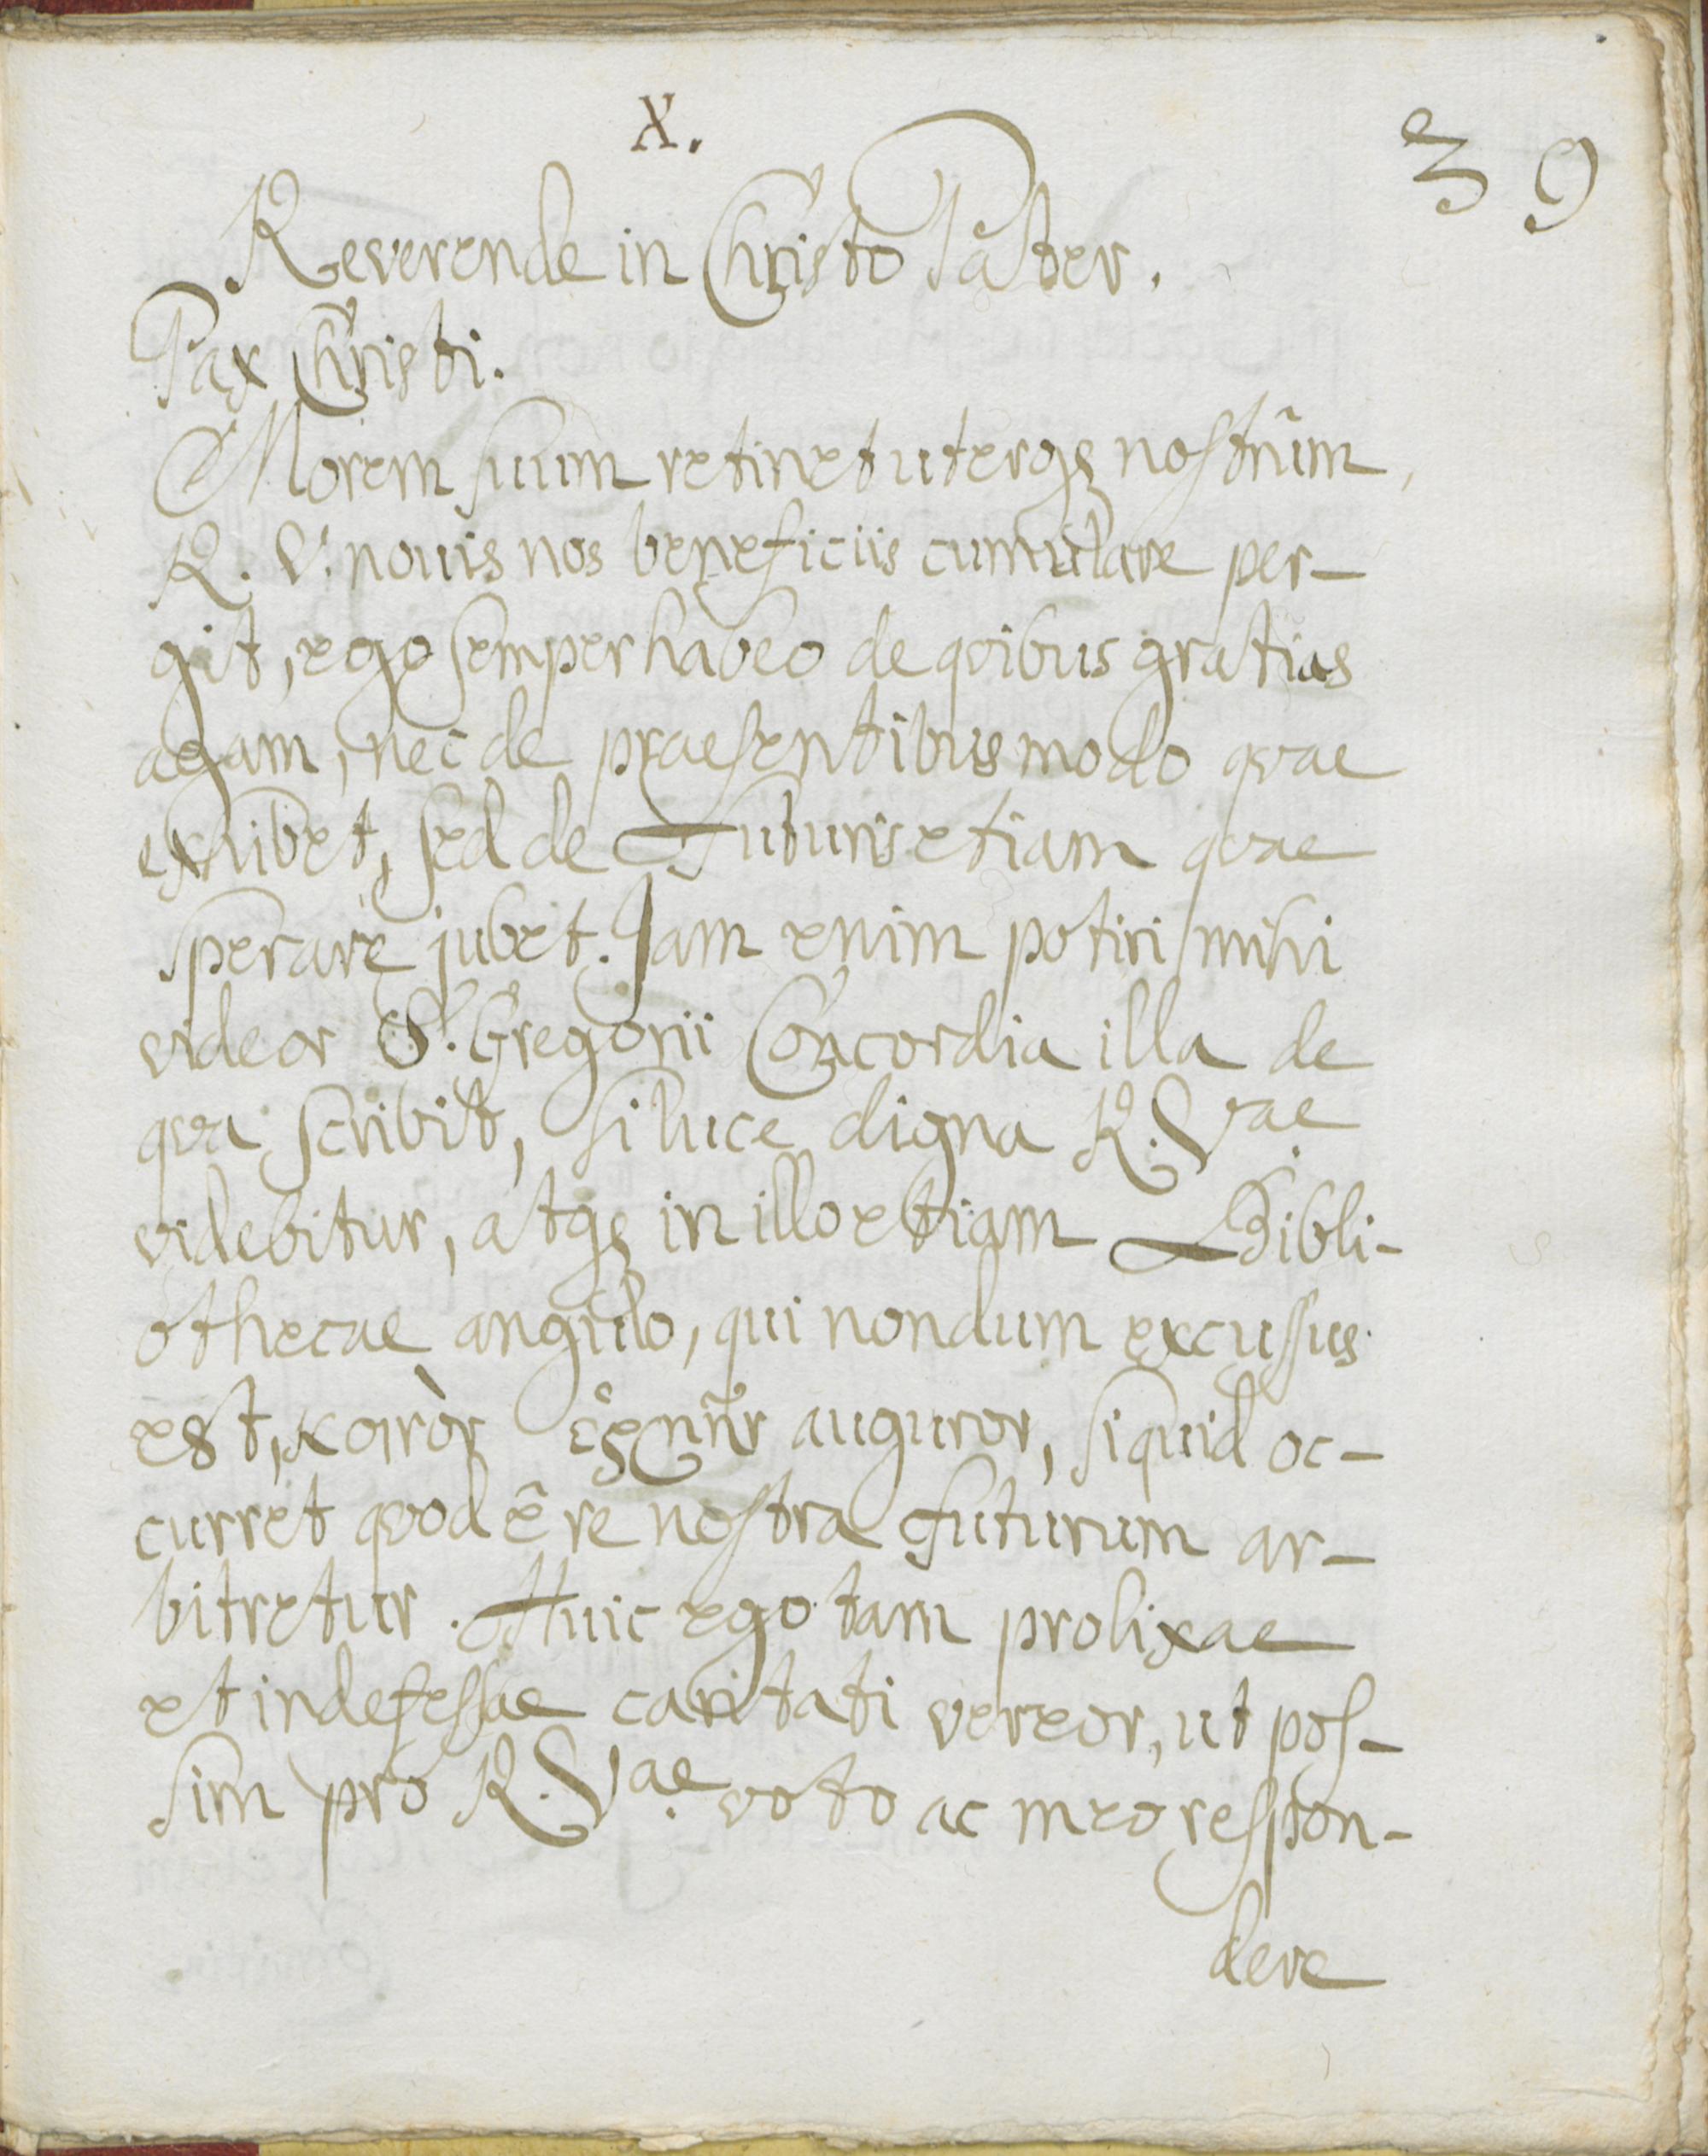 X.
39
Reverende in Christo Pater.
Pax Christi.
Morem suum retinet uterqȝ nostrûm,
R. V. nouis nos beneficiis cumulare per-
git, ego semper habeo de qvibus gratias
agam, nec de praesentibus modo qvae
exhibet, sed de Futuris etiam qvae
sperare jubet. Jam enim potiri mihi
videor S. Gregorii Concordia illa de
qva scribit, si luce digna R. Vae.
videbitur, atqȝ in illo etiam Bibli-
othecae angulo, qui nondum excussus
est, auguror, siquid oc-
curret qvod ê re nostra futurum ar-
bitretur. Huic ego tam prolixae
et indefessae caritati vereor, ut pos-
sim pro R. Vae. voto ac meo respon-
dere